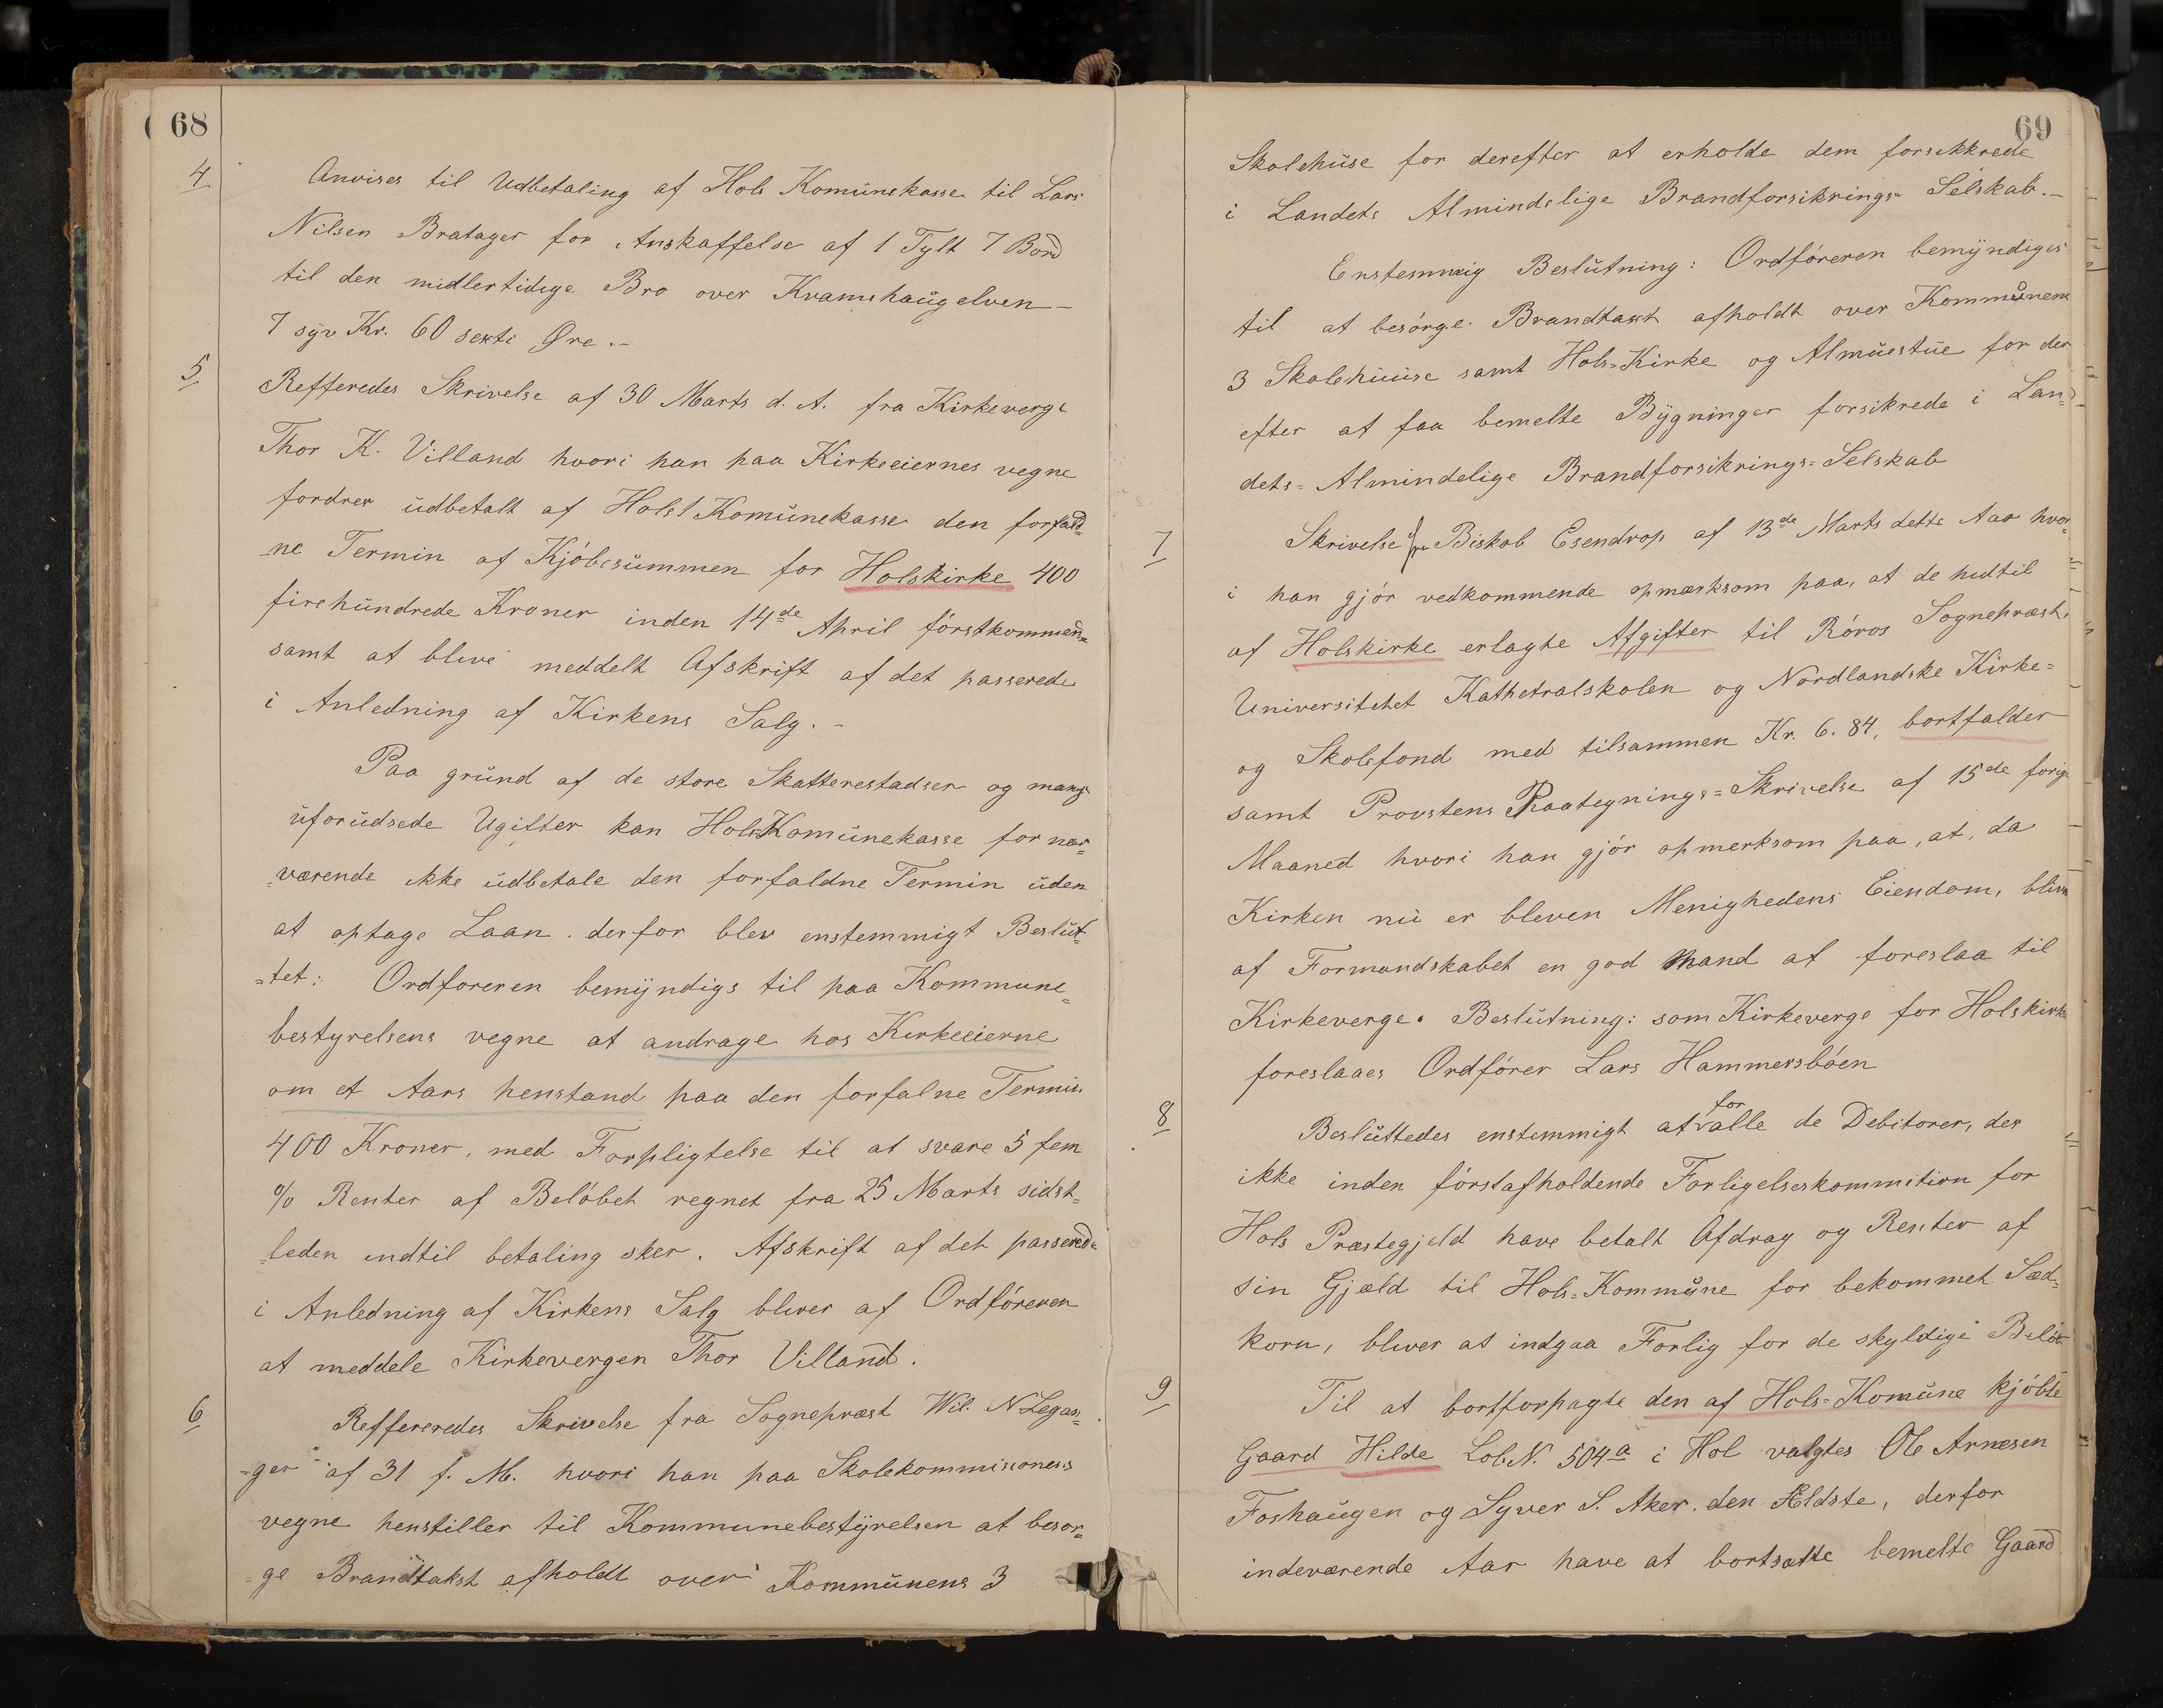 68
4
Anvises til Udbetaling af Hols Komünekasse til Lars
Nilsen Bratager for Anskaffelse af 1 Tylt 7 Bord
til den midlertidige Bro over Kvamshaügelven -
7 syv Kr. 60 sexti Øre. -
5
Refferedes Skrivelse af 30 Marts d. A. fra Kirkeverge
Thor K. Villand hvori han paa Kirkeeiernes vegne
fordrer üdbetalt af Hols Komünekasse den forfald=
ne Termin af Kjöbesümmen for Holskirke 400
firehündrede Kroner inden 14de April förstkommen=
samt at blive meddelt Afskrift af det passerede
i Anledning af Kirkens Salg. -
Paa gründ af de store Skatterestadser og mange
üforüdsede Ugifter kan Hols Komünekasse for nær=
=værende ikke üdbetale den forfaldne Termin üden
at optage Laan. derfor blev enstemmigt Beslüt=
=tet: Ordföreren bemÿndigs til paa Kommune=
bestyrelsens vegne at andrage hos Kirkeeierne
om et Aars henstand paa den forfalne Termin
400 Kroner, med Forpligtelse til at svare 5 fem
% Renter af Belöbet regnet fra 25 Marts sidst=
leden indtil betaling sker. Afskrift af det passerede
i Anledning af Kirkens Salg bliver af Ordföreren
at meddele Kirkevergen Thor Villand.
6
Reffereredes Skrivelse fra Sognepræst Wil. N Legan=
=ger af 31 f. M. hvori han paa Skolekommisionens
vegne henstiller til Kommunebestÿrelsen at besor=
=ge Brandtakst afholdt over Kommünens 3
69
Skolehüse for derefter at erholde dem forsikkrede
i Landets Almindelige Brandforsikrings= Selskab. -
Enstemmig Beslütning: Ordföreren bemÿndiges
til at besörge Brandtaxt afholdt over Kommünens
3 Skolehüüse samt Hols=Kirke og Almüestüe for der
efter at faa bemelte Bÿgninger forsikrede i Lan=
dets= Almindelige Brandforsikrings=Selskab
7
Skrivelse fra Biskob Esendrop af 13de Marts dette Aar hvor=
i han gjör vedkommende opmærksom paa, at de hidtil
af Holskirke erlagte Afgifter til Röros Sognepræst
Universitetet Kathetralskolen og Nordlandske Kirke=
og Skolefond med tilsammen Kr. 6.84, bortfalder
samt Provstens Paategnings=Skrivelse af 15de forige
Maaned hvori han gjör opmerksom paa, at, da
Kirken nü er bleven Menighedens Eiendom, bliver
af Formandskabet en god Mand at foreslaa til
Kirkeverge. Beslütning: som Kirkeverge for Holskirke
foreslaaes Ordförer Lars Hammersböen
8
for
Beslüttedes enstemmigt at alle de Debitorer, der
ikke inden förstafholdende Forligelseskommition for
Hols Præstegjeld have betalt Afdrag og Renter af
sin Gjæld til Hols=Kommüne for bekommet Sæd=
korn, bliver at indgaa Forlig for de skyldige Belöb
9
Til at bortforpagte den af Hols=Komüne kjöbte
Gaard Hilde Lob.N. 504a i Hol valgtes Ole Arnesen
Foshaügen og Syver S. Aker den Ældste, derfor
indeværende Aar have at bortsætte bemelte Gaard